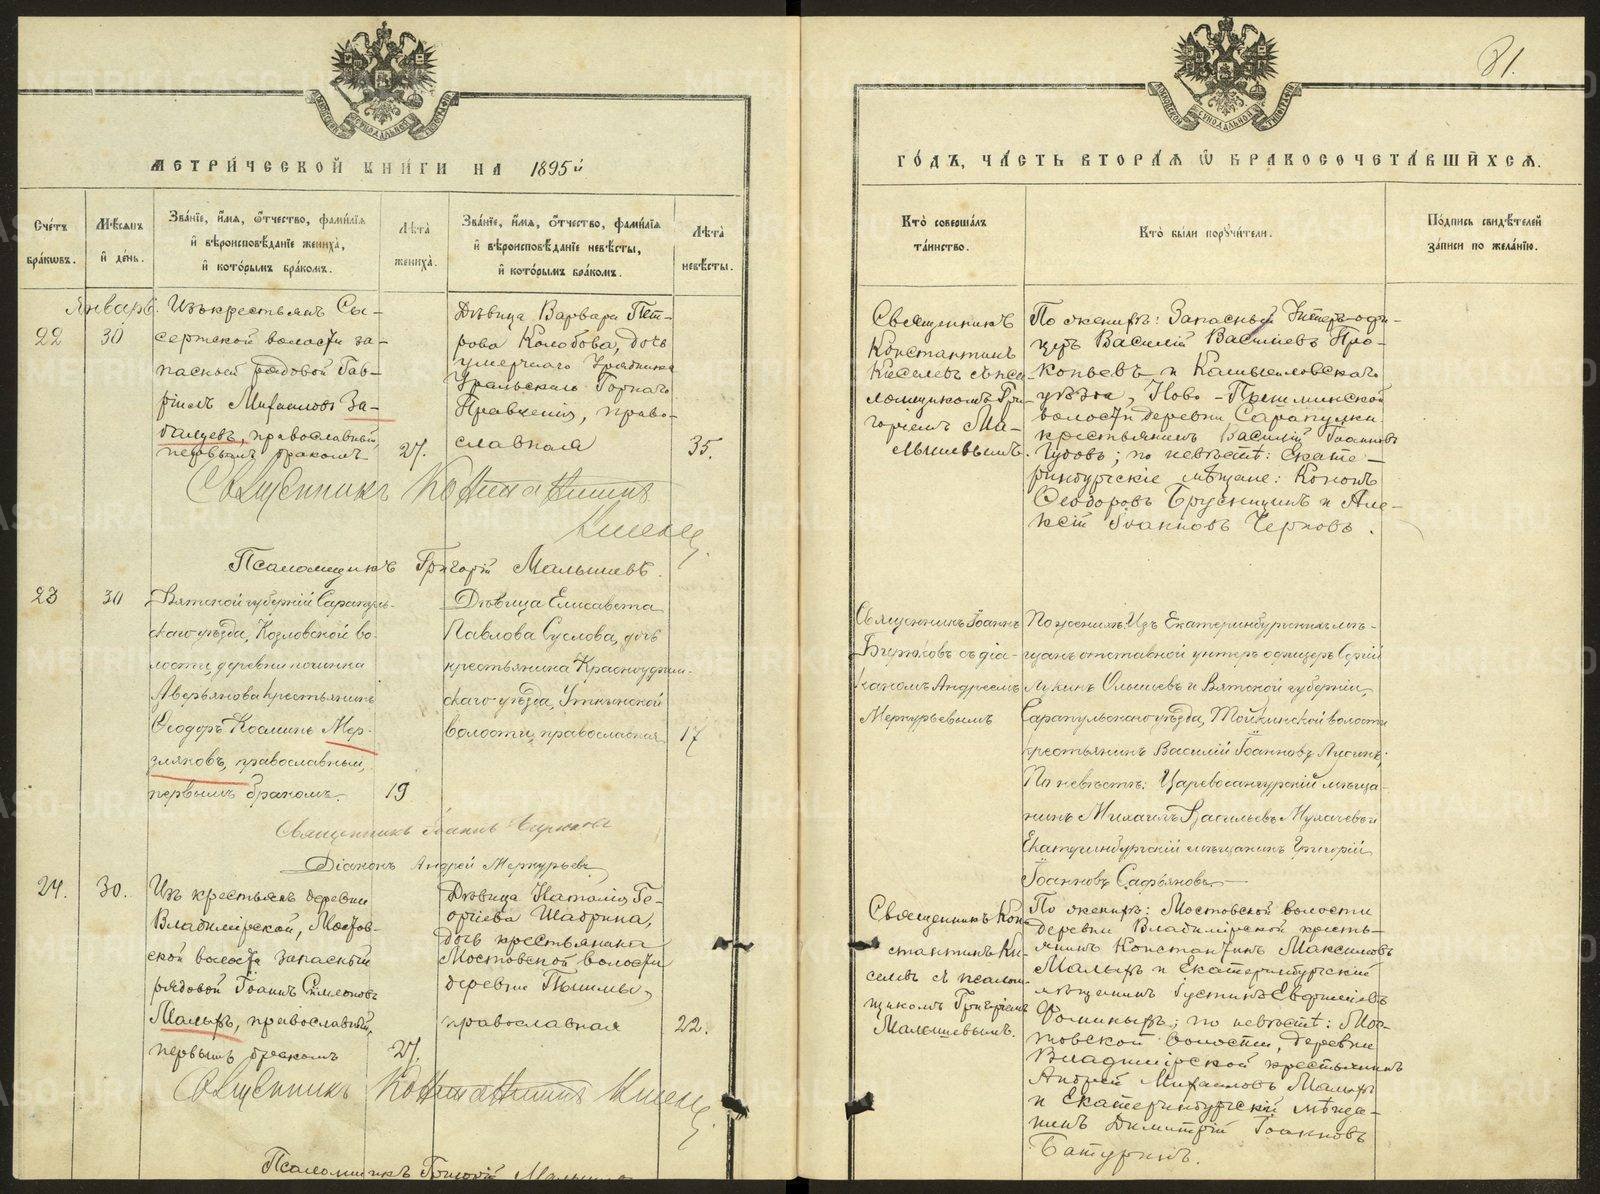 81.
МЕТРИЧЕСКОЙ КНИГИ НА 1895й
ГОДЪ, ЧАСТЬ ВТОРАЯ Ѿ БРАКОСОЧЕТАВШИХСЯ.
Счетъ браковъ.
Мѣсяцъ и день.
Званіе, имя, отчество, фамилія
и вѣроисповѣданіе жениха,
и которымъ бракомъ.
Лѣта жениха.
Званіе, имя, отчество, фамилія
и вѣроисповѣданіе невѣсты,
и которымъ бракомъ.
Лѣта невѣсты.
Кто совершалъ
таинство.
Кто были поручители.
Подпись свидѣтелей
записи по желанію.
Январь.
22
30
Изъ крестьянъ Сы-
сертской волости за-
пасный рядовой Гав-
ріилъ Михаиловъ За-
балуевъ, православный,
первымъ бракомъ
27.
Дѣвица Варвара Пет-
рова Колобова, дочь
умершаго Урядника
Уральскаго Горнаго
Правленія, право-
славная
35.
Священникъ
Константинъ
Киселевъ съ пса-
ломщикомъ Гри-
горіемъ Ма-
лышевымъ.
По женихѣ: Запасный Унтеръ-офи-
церъ Василій Васильевъ Про-
копьевъ и Камышловскаго
уѣзда, Ново-Пышминской
волости деревни Сарапулки
крестьянинъ Василій Іоанновъ
Чудовъ; по невѣстѣ: Екате-
ринбургскіе мѣщане: Кононъ
Ѳеодоровъ Брусницынъ и Але-
ксій Іоанновъ Черновъ.
Священникъ Константинъ
Киселевъ
Псаломщикъ Григорій Малышевъ.
23
30
Вятской губерніи Сарапуль-
скаго уѣзда, Козловской во-
лости, деревни починка
Аверьянова крестьянинъ
Ѳеодоръ Косминъ Мер-
зляковъ, православный,
первымъ бракомъ.
19
Дѣвица Елисавета
Павлова Суслова, дочь
крестьянина Красноуфим-
скаго уѣзда, Уткинской
волости, православная
17
Священникъ Іоаннъ
Бирюковъ съ діа-
кономъ Андреемъ
Меркурьевымъ
По женихѣ: Изъ Екатеринбургскихъ мѣ-
щанъ отставной унтеръ офицеръ Сергій
Олышевъ и Вятской губерніи,
Сарапульскаго уѣзда, Тойкинской волости
крестьянинъ Василій Іоанновъ
По невѣстѣ: Царевосанчурскій мѣща-
нинъ Михаилъ Васильевъ Мухачевъ и
Екатеринбургскій мѣщанинъ Григорій
Іоанновъ Сафьяновъ
Священникъ Іоаннъ Бирюковъ
Діаконъ Андрей Меркурьевъ
24.
30.
Изъ крестьянъ деревни
Владимірской, Мостов-
ской волости запасный
рядовой Іоаннъ Симеоновъ
Малыхъ, православный,
первымъ бракомъ
27.
Дѣвица Наталія Ге-
оргіева Шабрина,
дочь крестьянина
Мостовской волости
деревни Пышмы,
православная
22.
Священникъ Кон-
стантинъ Ки-
селевъ съ псалом-
щикомъ Григоріемъ
Малышевымъ.
По женихѣ: Мостовской волости
деревни Владимірской кресть-
янинъ Константинъ Максимовъ
Малыхъ и Екатеринбургскій
мѣщанинъ Іустинъ Евфиміевъ
Ѳоминыхъ; по невѣстѣ: Мос-
товской волости, деревни
Владимірской крестьянинъ
Андрей Михаиловъ Малыхъ
и Екатеринбургскій мѣща-
нинъ Димитрій Іоанновъ
Батуринъ.
Священникъ Константинъ Киселевъ
Псаломщикъ Григорій Малышевъ